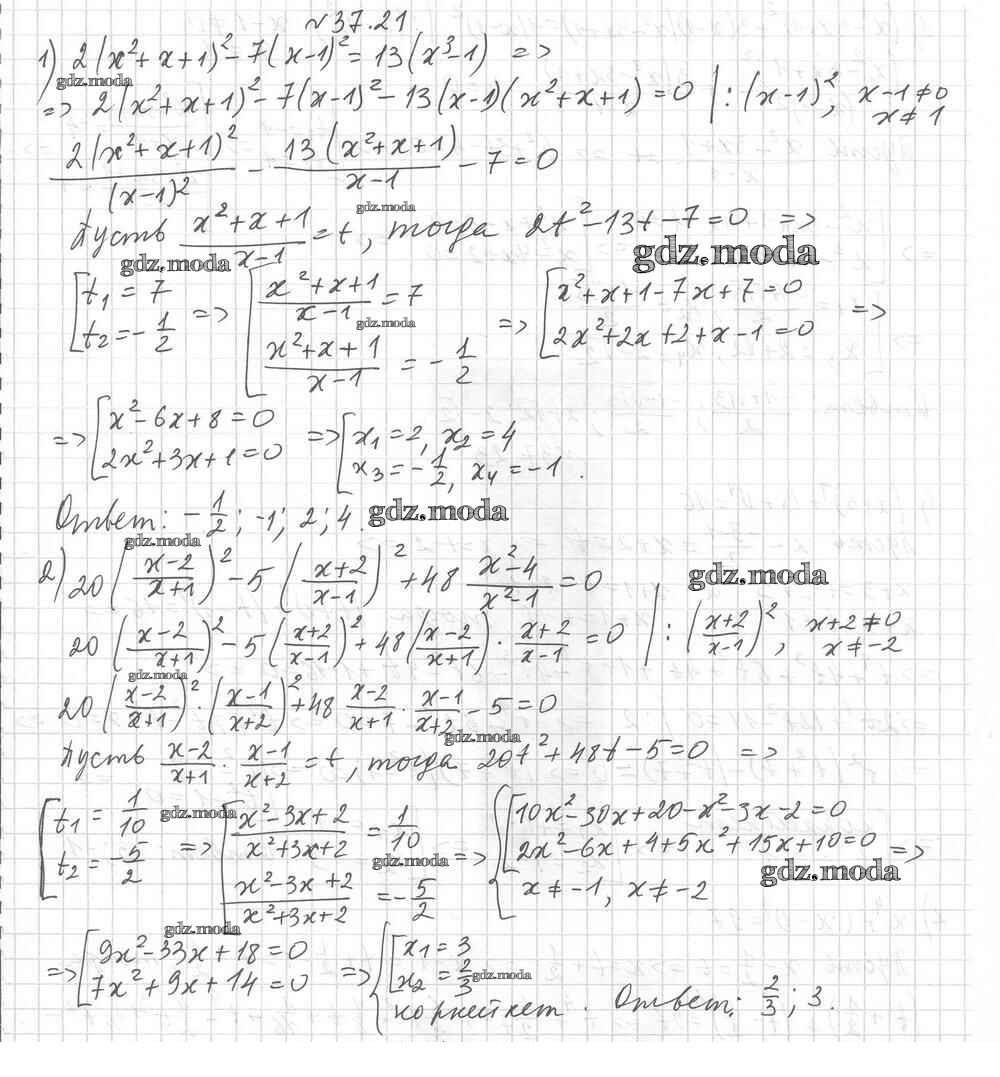 №37.21
1) 2(x²+x+1)²-7(x-1)²=13(x³-1) =>
gdz.moda
=> 2(x²+x+1)²-7(x-1)²-13(x-1)(x²+x+1)=0 |:(x-1)², x-1≠0
x≠1
2(x²+x+1)²/(x-1)² - 13(x²+x+1)/(x-1) - 7=0
gdz.moda
Пусть (x²+x+1)/(x-1)=t, тогда 2t²-13t-7=0 =>
gdz.moda
gdz.moda
[t₁=7; t₂=-1/2 => [(x²+x+1)/(x-1)=7; (x²+x+1)/(x-1)=-1/2 => [x²+x+1-7x+7=0; 2x²+2x+2+x-1=0 =>
gdz.moda
=> [x²-6x+8=0; 2x²+3x+1=0 => [x₁=2, x₂=4; x₃=-1/2, x₄=-1.
Ответ: -1/2; -1; 2; 4.
gdz.moda
gdz.moda
2) 20((x-2)/(x+1))²-5((x+2)/(x-1))²+48 (x²-4)/(x²-1)=0
gdz.moda
20((x-2)/(x+1))²-5((x+2)/(x-1))²+48((x-2)/(x+1))·(x+2)/(x-1)=0 |:((x+2)/(x-1))², x+2≠0
x≠-2
gdz.moda
20((x-2)/(x+1))²·((x-1)/(x+2))²+48 (x-2)/(x+1)·(x-1)/(x+2)-5=0
gdz.moda
Пусть (x-2)/(x+1)·(x-1)/(x+2)=t, тогда 20t²+48t-5=0 =>
gdz.moda
[t₁=1/10; t₂=-5/2 => [(x²-3x+2)/(x²+3x+2)=1/10; (x²-3x+2)/(x²+3x+2)=-5/2 => {[10x²-30x+20-x²-3x-2=0; 2x²-6x+4+5x²+15x+10=0; x≠-1, x≠-2 =>
gdz.moda
gdz.moda
gdz.moda
=> [9x²-33x+18=0; 7x²+9x+14=0 => {[x₁=3; x₂=2/3; корней нет. Ответ: 2/3; 3.
gdz.moda